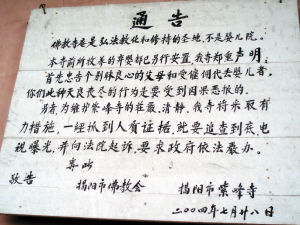 通告
佛教寺庵是弘法教化和修持的圣地,不是婴儿院。
本寺前所收养的弃婴都已另行安置,我寺郑重声明,
首先忠告个别昧良心的父母和受雇佣代丢婴儿者。
你们此种天良丧尽的行为是要受到因果恶报的。
另者,为维护紫峰寺的庄严、清静,我寺将采取有
力措施,一经抓到人员证据,就要追查到底,电
视曝光,并向法院起诉,要求政府依法严办。
专此
敬告 揭阳市佛教会 揭阳市紫峰寺
二〇〇四年七月廿八日